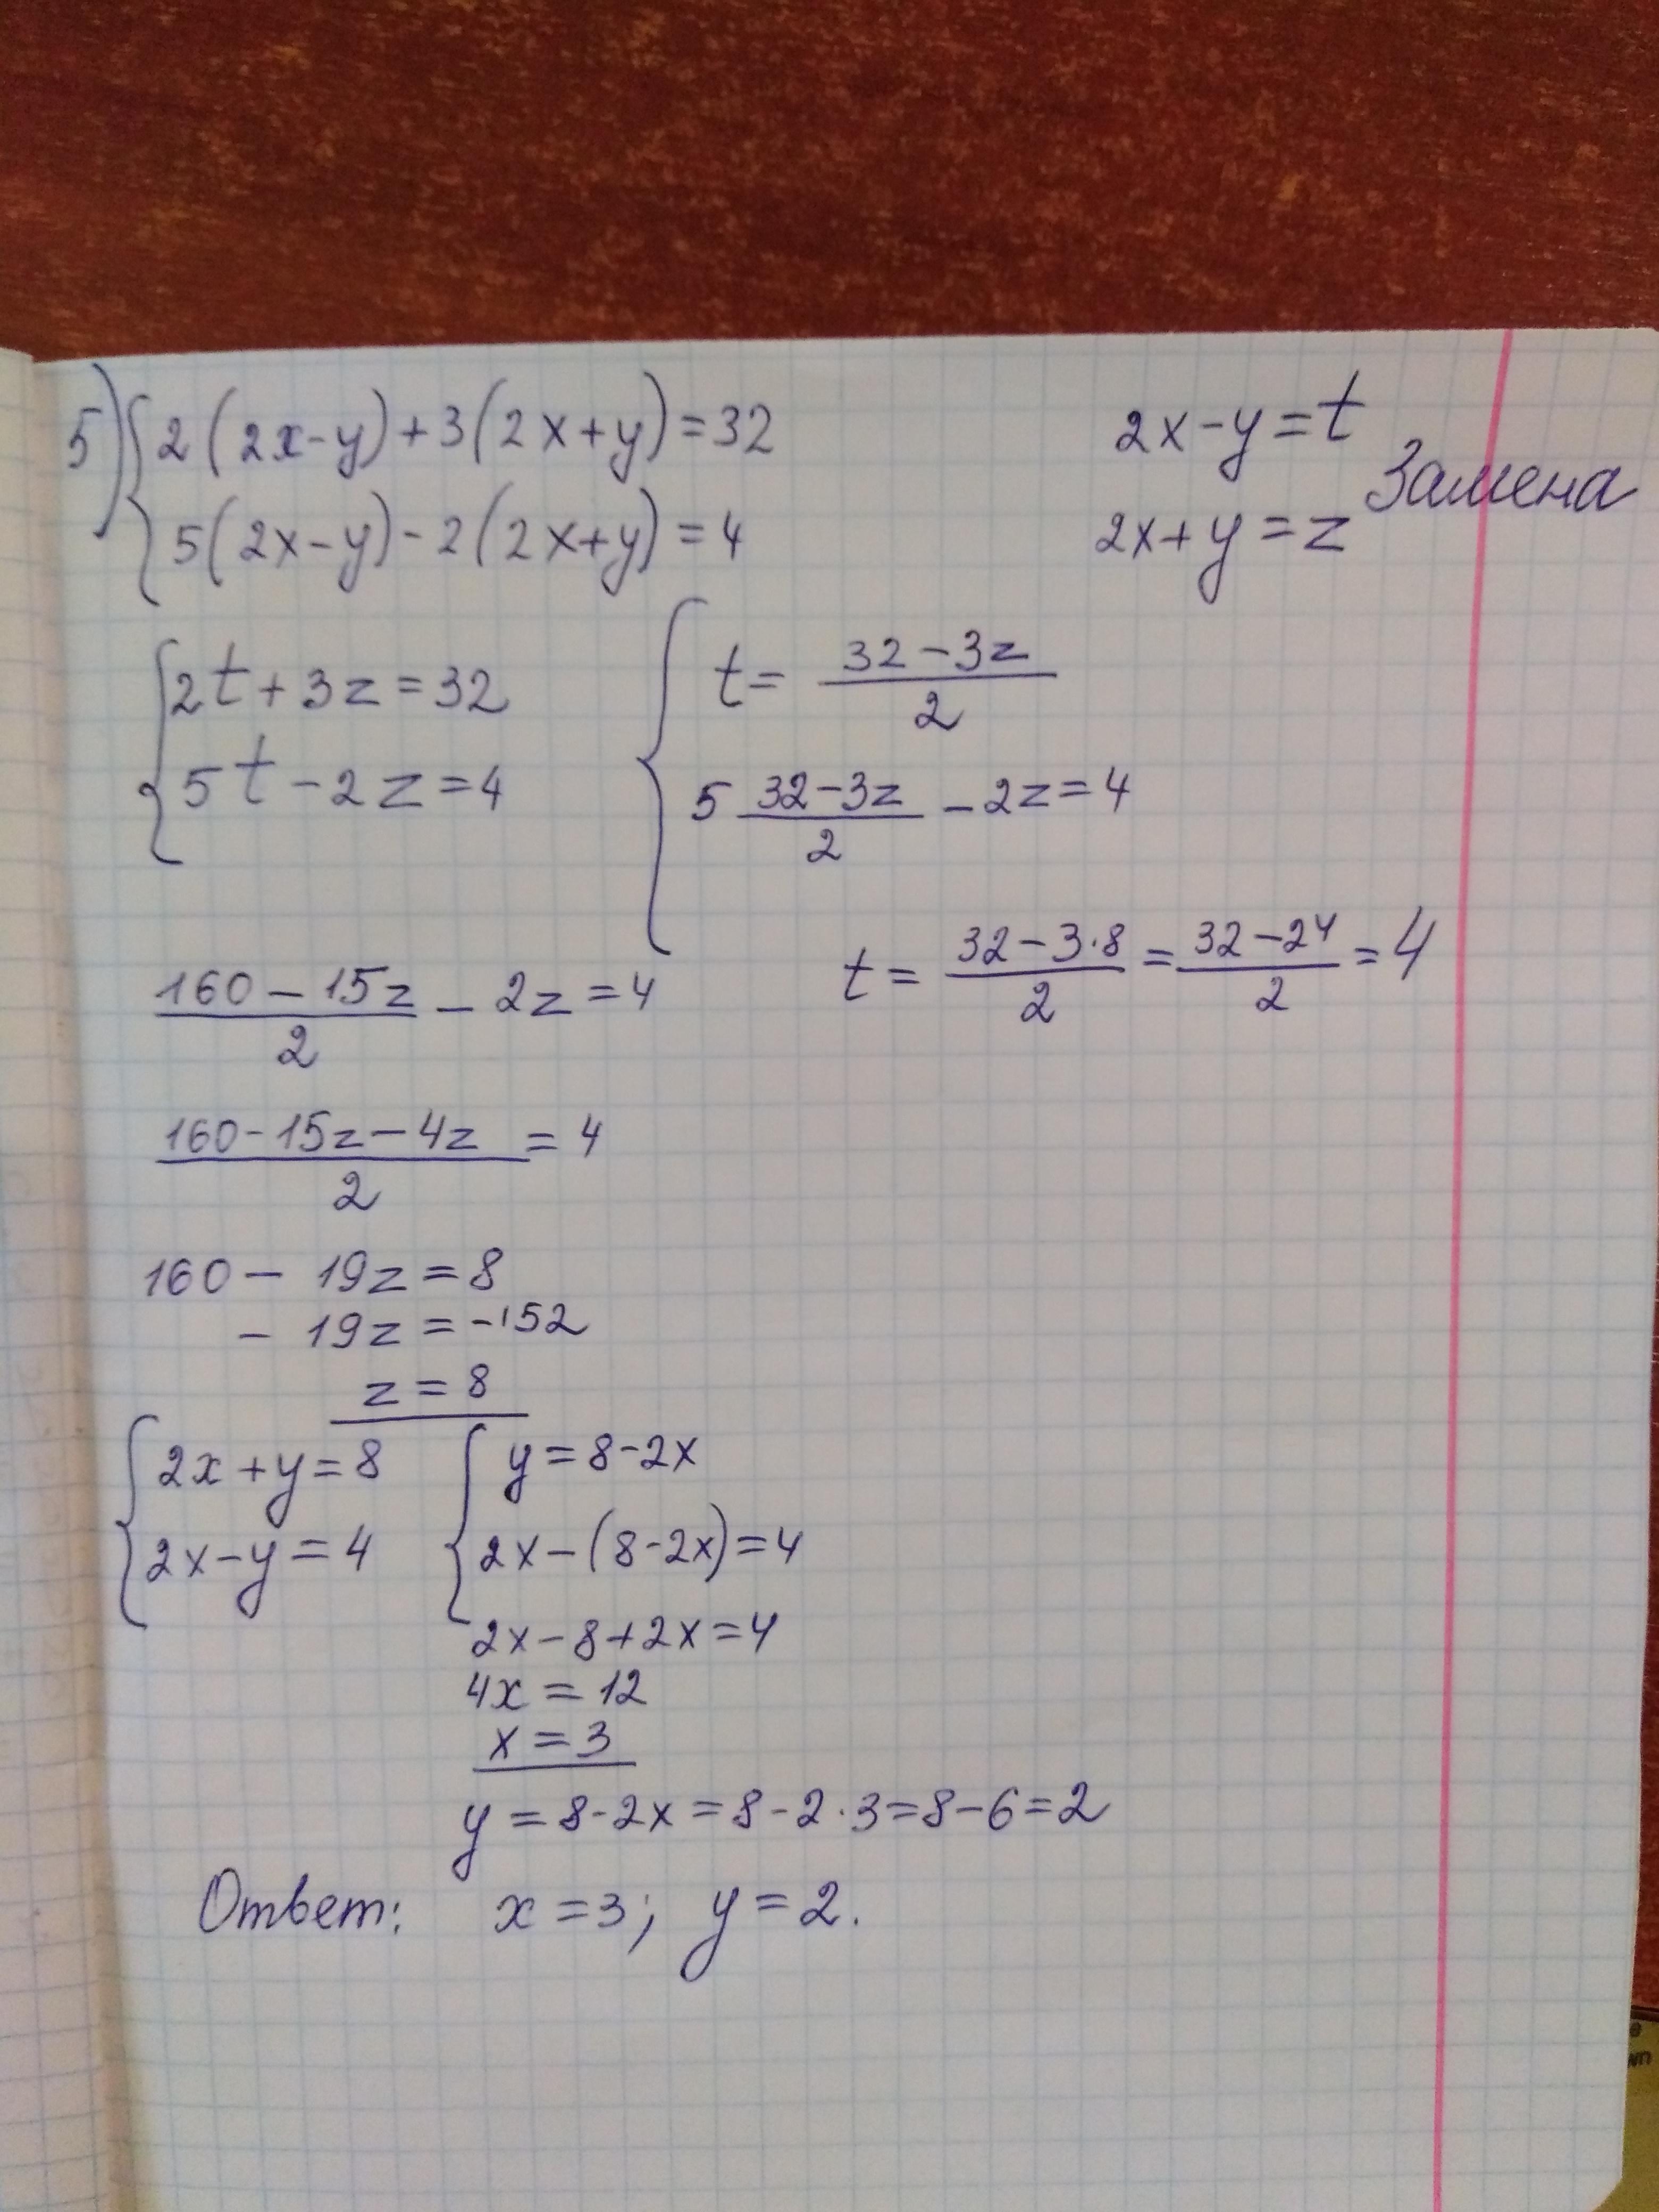 5) { 2(2x-y)+3(2x+y)=32
5(2x-y)-2(2x+y)=4
2x-y=t
2x+y=z
Замена
{ 2t+3z=32
5t-2z=4
{ t= (32-3z)/2
5 (32-3z)/2 -2z=4
t= (32-3·8)/2 = (32-24)/2 =4
(160-15z)/2 - 2z=4
(160-15z-4z)/2 = 4
160- 19z=8
- 19z=-152
z=8
{ 2x+y=8
2x-y=4
{ y=8-2x
2x-(8-2x)=4
2x-8+2x=4
4x=12
x=3
y=8-2x=8-2·3=8-6=2
Ответ: x=3; y=2.